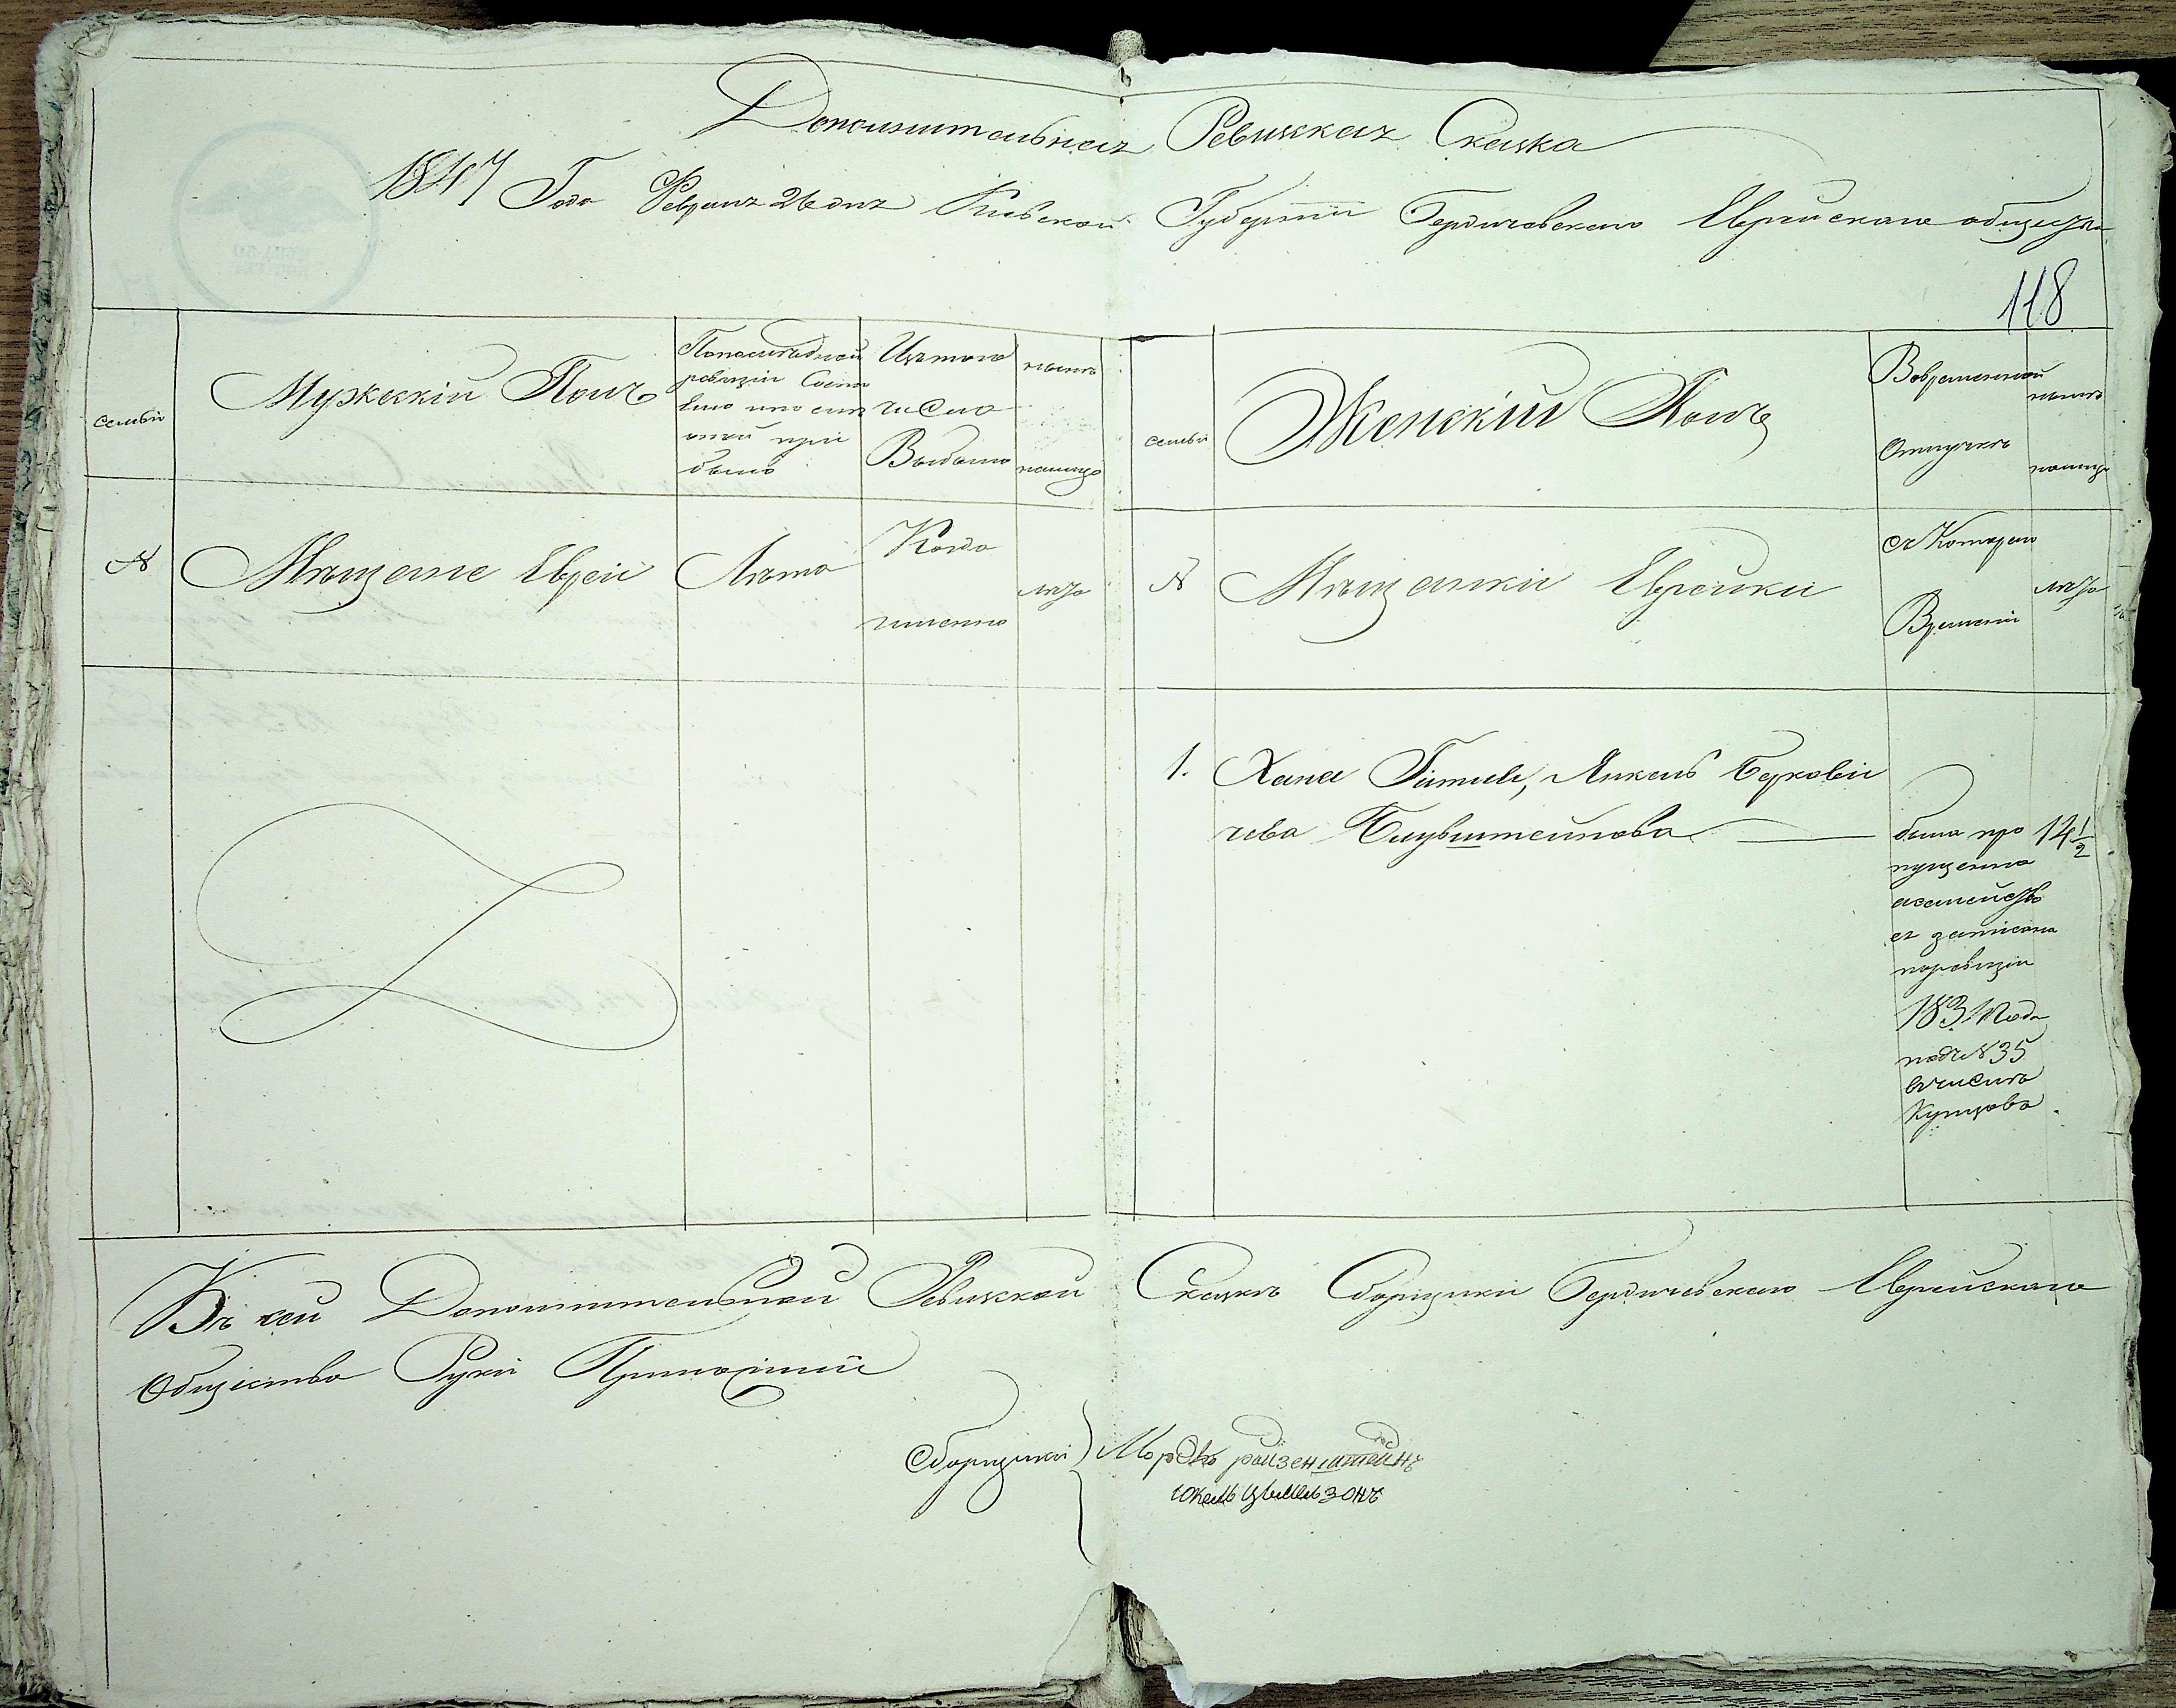 Дополнительная Ревизская Сказка
1847 Года Февраля 26 дня Киевской Губернии Бердичевскаго Еврейскаго общества
118
семьи
Мужескій Полъ
По последней
ревизіи состо
яло и после
оной при
было
Изъ того
числа
Выбыло
ныне
налицо
семьи
Женскій Полъ
Вовременной
Отлучке
ныне
налицо
№
Мещане Евреи
Лета
Когда
именно
лета
№
Мещанки Еврейки
съ Котораго
Времени
лета
1. Хана Гитля, Янкель Беркови
чева
была про 14 1/2
пущенна
а семейство
ея записана
по ревизіи
1834 Года
подъ №35
въ числе
Купцовъ
Къ сей Дополнительной Ревизской Сказке Сборщики Бердичевскаго Еврейскаго
Общества Руки Приложили
Сборщики
Мордко райзенштейнъ